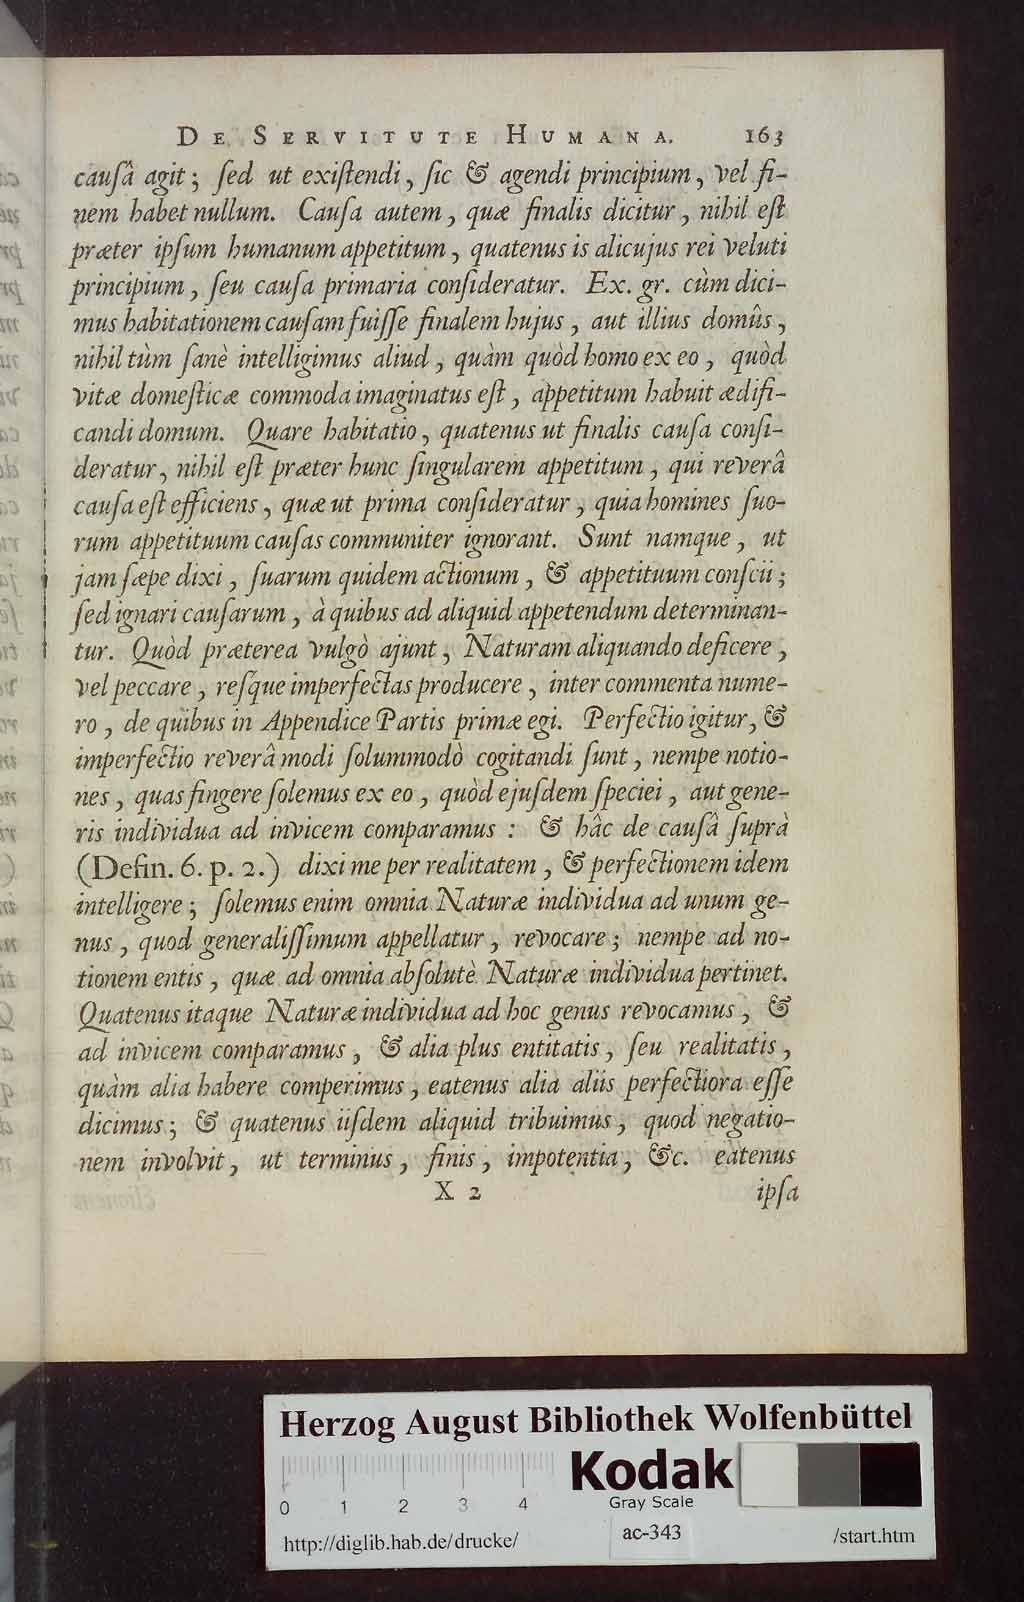 De Servitute Humana. 163
cauſâ agit; ſed ut exiſtendi, ſic & agendi principium, vel fi-
nem habet nullum. Cauſa autem, quæ finalis dicitur, nihil eſt
præter ipſum humanum appetitum, quatenus is alicujus rei veluti
principium, ſeu cauſa primaria conſideratur. Ex. gr. cùm dici-
mus habitationem cauſam fuiſſe finalem hujus, aut illius domûs,
nihil tùm ſanè intelligimus aliud, quàm quòd homo ex eo, quòd
vitæ domeſticæ commoda imaginatus eſt, appetitum habuit ædifi-
candi domum. Quare habitatio, quatenus ut finalis cauſa conſi-
deratur, nihil eſt præter hunc ſingularem appetitum, qui reverâ
cauſa eſt efficiens, quæ ut prima conſideratur, quia homines ſuo-
rum appetituum cauſas communiter ignorant. Sunt namque, ut
jam ſæpe dixi, ſuarum quidem actionum, & appetituum conſcii;
ſed ignari cauſarum, à quibus ad aliquid appetendum determinan-
tur. Quòd præterea vulgò ajunt, Naturam aliquando deficere,
vel peccare, reſque imperfectas producere, inter commenta nume-
ro, de quibus in Appendice Partis primæ egi. Perfectio igitur, &
imperfectio reverâ modi ſolummodò cogitandi ſunt, nempe notio-
nes, quas fingere ſolemus ex eo, quòd ejuſdem ſpeciei, aut gene-
ris individua ad invicem comparamus: & hâc de cauſâ ſuprà
(Defin. 6. p. 2.) dixi me per realitatem, & perfectionem idem
intelligere; ſolemus enim omnia Naturæ individua ad unum ge-
nus, quod generaliſſimum appellatur, revocare; nempe ad no-
tionem entis, quæ ad omnia abſolutè Naturæ individua pertinet.
Quatenus itaque Naturæ individua ad hoc genus revocamus, &
ad invicem comparamus, & alia plus entitatis, ſeu realitatis,
quàm alia habere comperimus, eatenus alia aliis perfectiora eſſe
dicimus; & quatenus iiſdem aliquid tribuimus, quod negatio-
nem involvit, ut terminus, finis, impotentia, &c. eatenus
X 2 ipſa
Herzog August Bibliothek Wolfenbüttel
Kodak
Gray Scale
0 1 2 3 4
http://diglib.hab.de/drucke/ ac-343 /start.htm